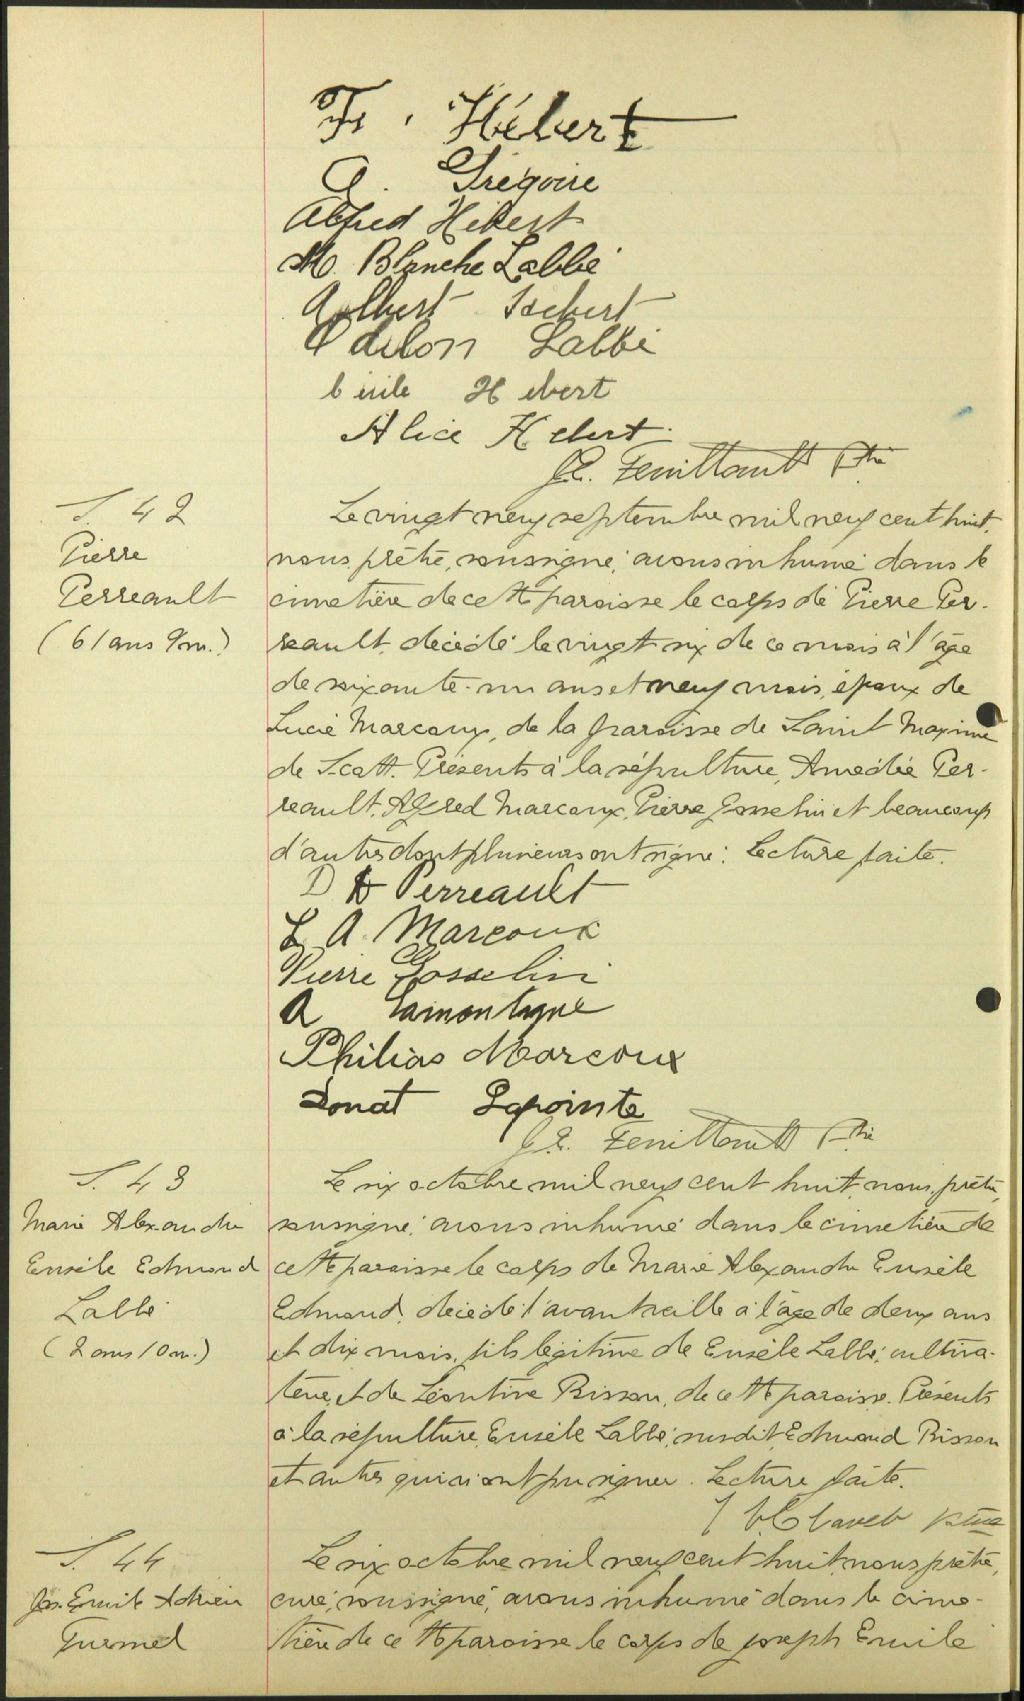 Fr. Hébert
A. Grégoire
Alfred Hébert
M. Blanche Labbé
Albert Hebert
Odilon Labbé
Cécile Hebert
Alice Hebert.
J.E. Feuiltault Ptre
S. 42
Pierre
Perreault
(61 ans 9 m.)
Le vingt neuf septembre mil neuf cent huit,
nous, prêtre, soussigné, avons inhumé dans le
cimetière de cette paroisse le corps de Pierre Per-
reault, décédé le vingt six de ce mois à l'âge
de soixante-un ans et neuf mois, époux de
Lucie Marcoux, de la paroisse de Saint Maxime
de Scott. Présents à la sépulture, Amedée Per-
reault, Alfred Marcoux, Pierre Gosselin et beaucoup
d'autres dont plusieurs ont signé. Lecture faite.
D A Perreault
L. A. Marcoux
Pierre Gosselin
A Lamontagne
Philias Marcoux
Donat Lapointe
J.E. Feuiltault Ptre
S. 43
Marie Alexandre
Eusèbe Edmond
Labbé
(2 ans 10 m.)
Le six octobre mil neuf cent huit, nous, prêtre,
soussigné, avons inhumé dans le cimetière de
cette paroisse le corps de Marie Alexandre Eusèbe
Edmond, décédé l'avant veille à l'âge de deux ans
et dix mois, fils légitime de Eusèbe Labbé, cultiva-
teur, et de Léontine Bisson, de cette paroisse. Présents
à la sépulture, Eusèbe Labbé, susdit, Edmond Bisson
et autres qui n'ont pu signer. Lecture faite.
ptre
S. 44
Jos. Emile Adrien
Turmel
Le six octobre mil neuf cent huit, nous, prêtre,
curé, soussigné, avons inhumé dans le cime-
tière de cette paroisse le corps de Joseph Emile